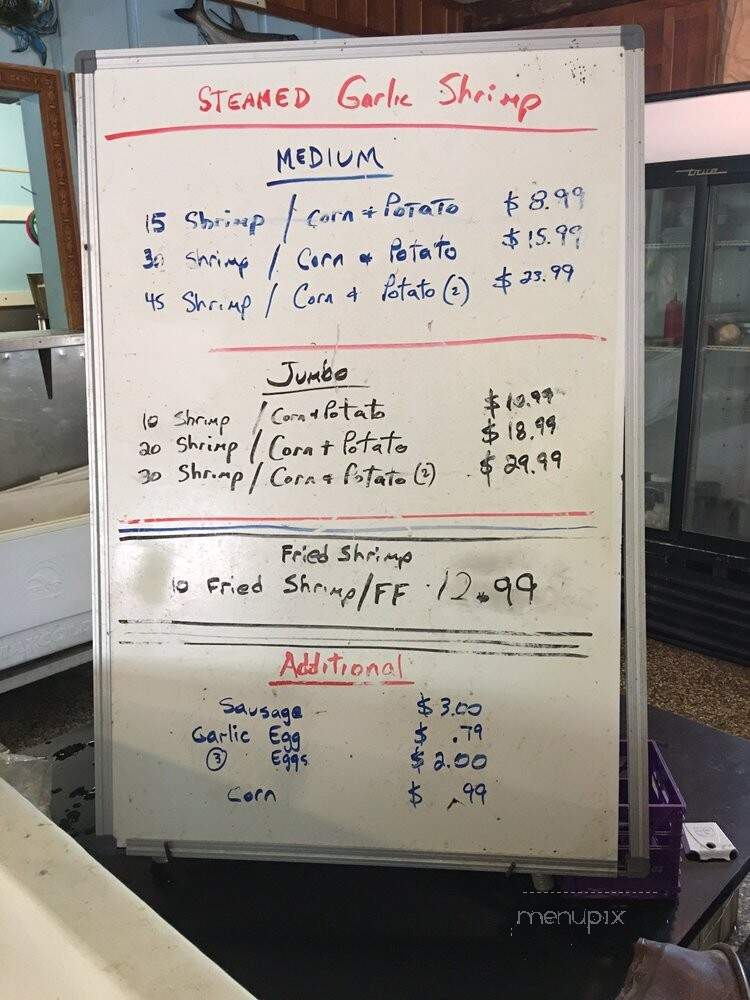 STEAMED Garlic Shrimp
MEDIUM
15 Shrimp / Corn + Potato $ 8.99
30 Shrimp / Corn + Potato $ 15.99
45 Shrimp / Corn + Potato (2) $ 23.99
Jumbo
10 Shrimp / Corn + Potato $ 10.99
20 Shrimp / Corn + Potato $ 18.99
30 Shrimp / Corn + Potato (2) $ 29.99
Fried Shrimp
10 Fried Shrimp / FF 12.99
Additional
Sausage $ 3.00
Garlic Egg $ .79
3 Eggs $ 2.00
Corn $ .99
true
menupix